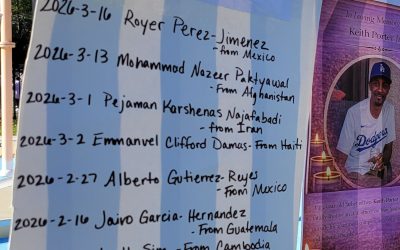 2026-3-16 Royer Perez-Jimenez
-from Mexico
2026-3-13 Mohammod Nazeer Paktyawal
-From Afghanistan
2026-3-1 Pejaman Karshenas Najafabadi
-from Iran
2026-3-2 Emmanuel Clifford Damas-From Haiti
2026-2-27 Alberto Gutierrez-Reyes
-From Mexico
2026-2-16 Jairo Garcia-Hernandez
-From Guatemala
Sim- From Cambodia
In Loving Memory
Keith Porter
Dodgers